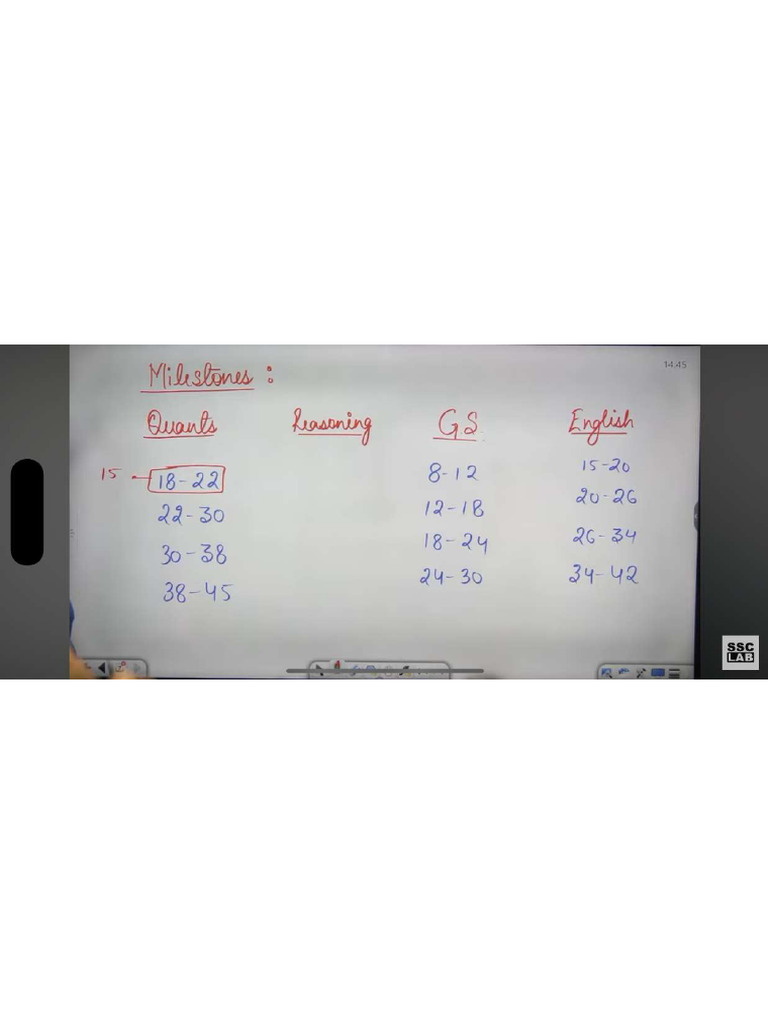 14:45
Milestones :
Quants Reasoning GS English
15 18-22 8-12 15-20
22-30 12-18 20-26
30-38 18-24 26-34
38-45 24-30 34-42
SSC
LAB